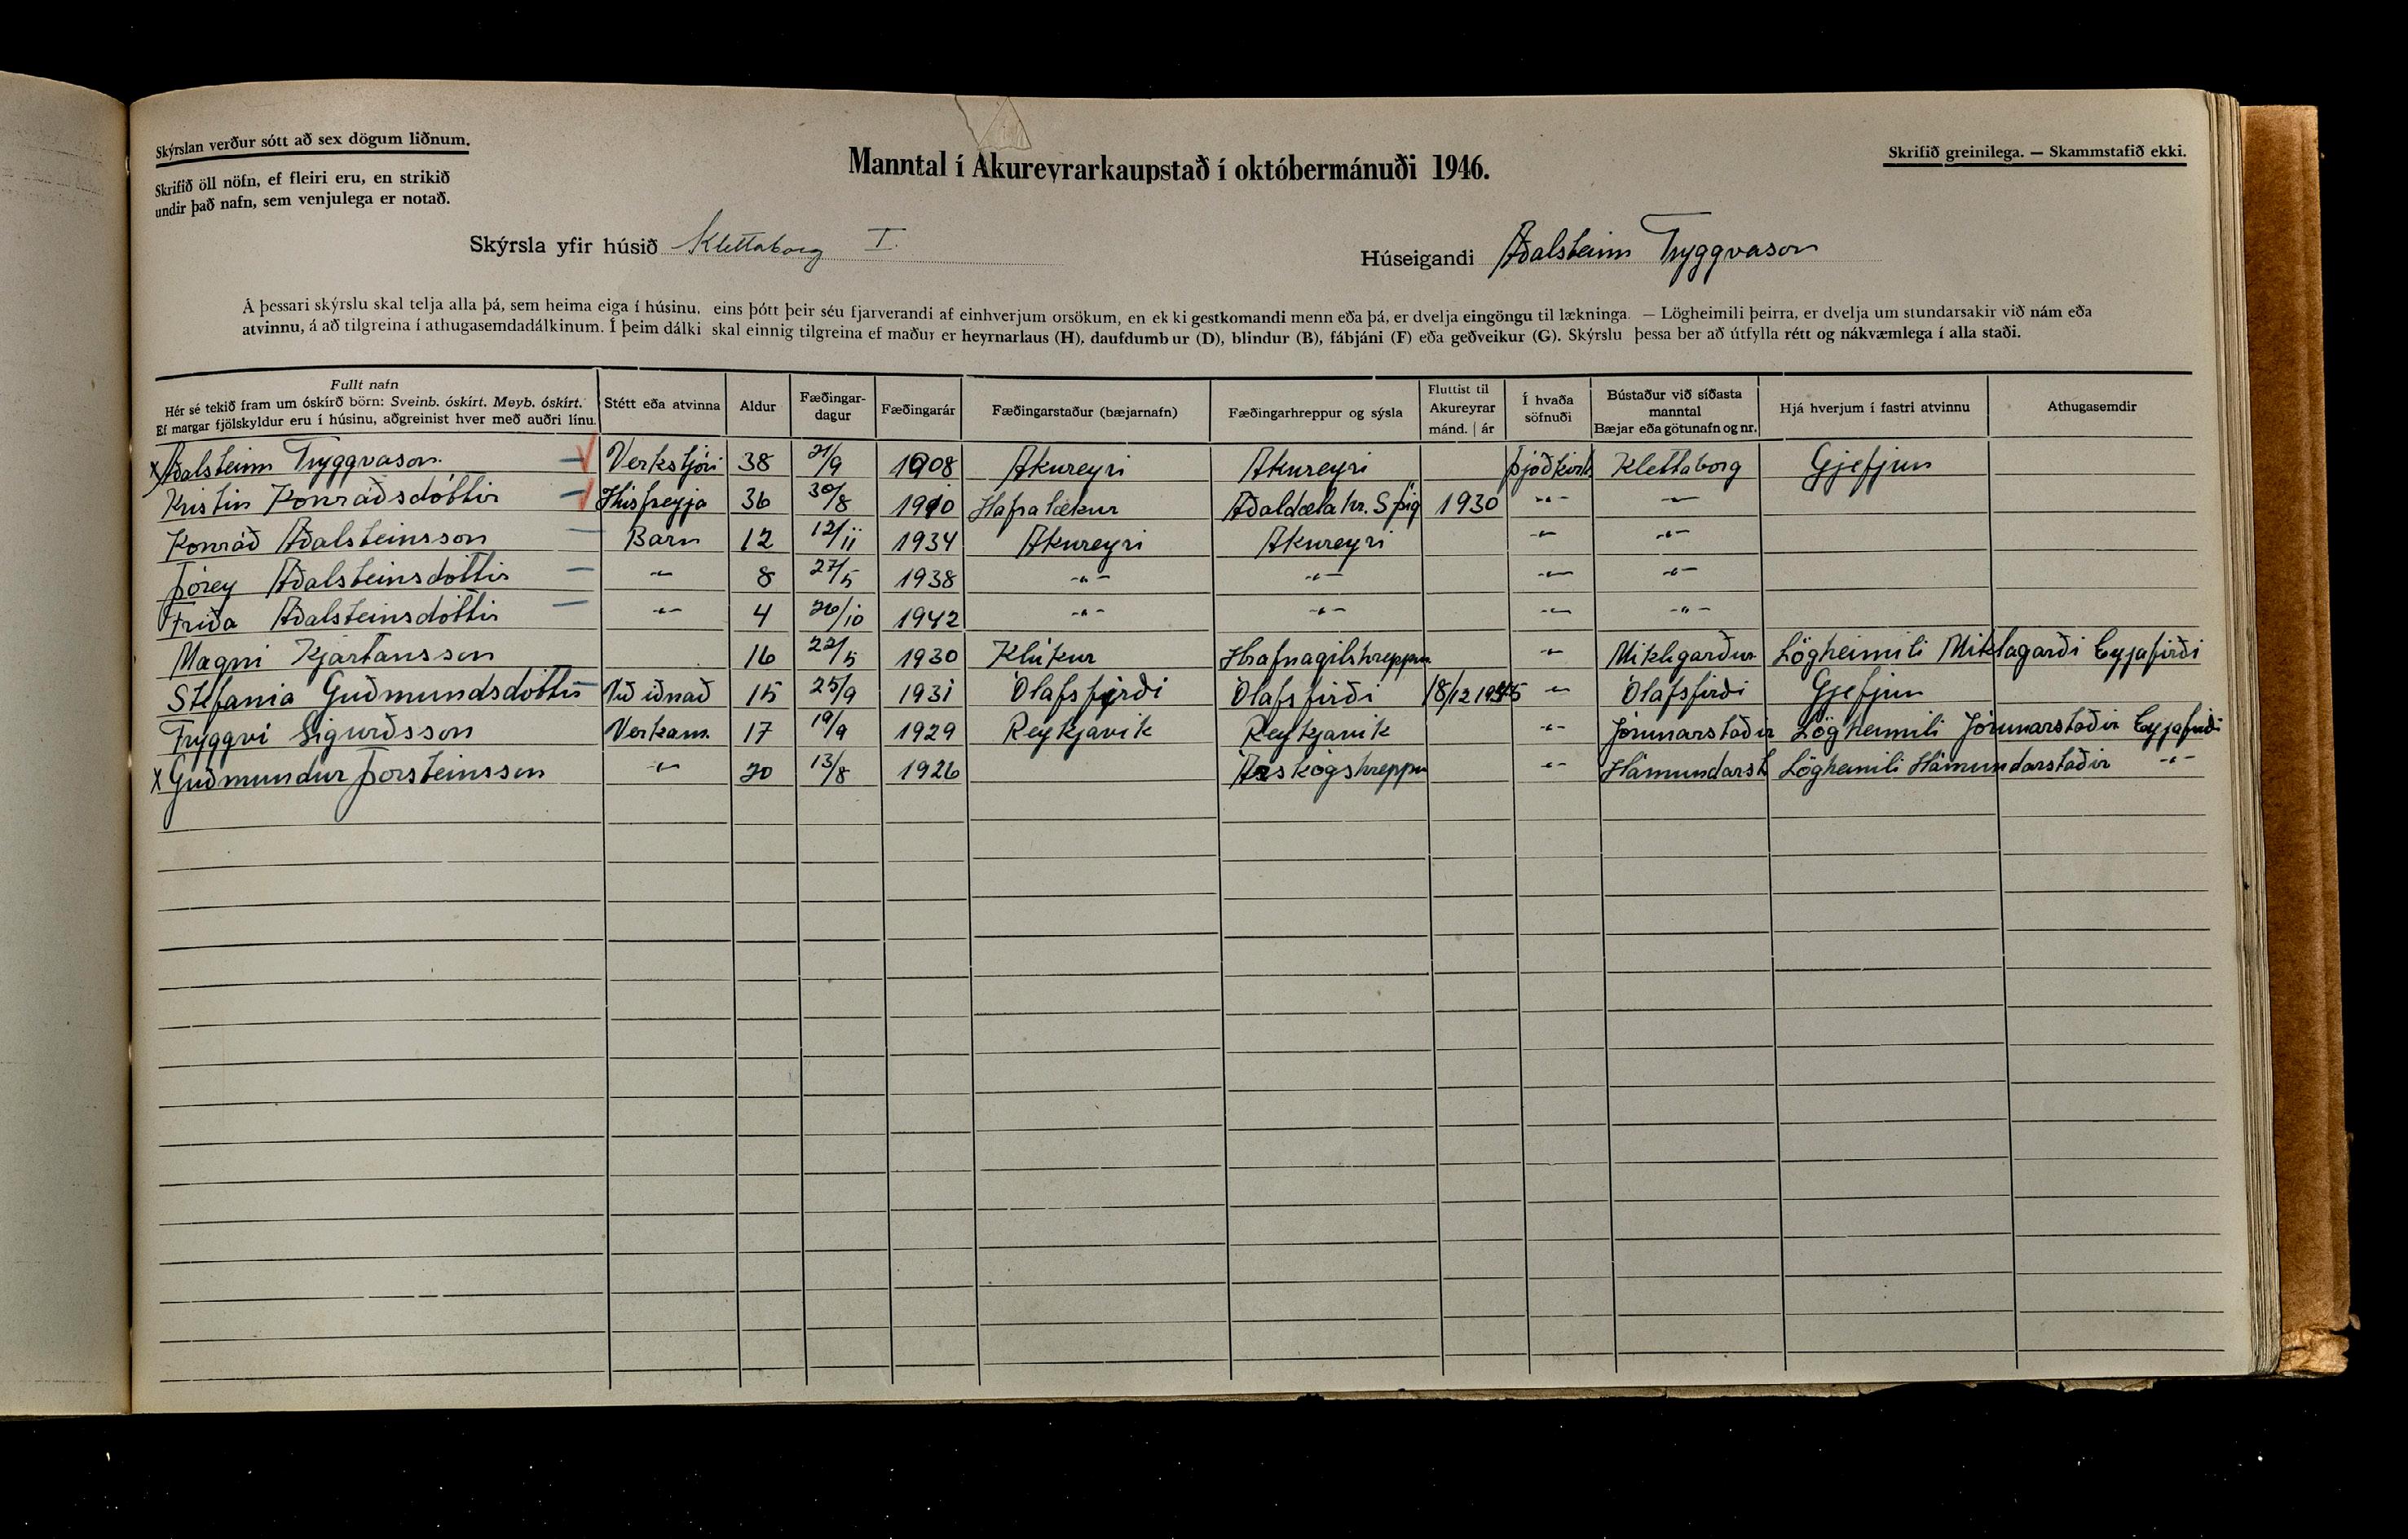 Skýrslan verður sótt að sex dögum liðnum.
Skrifið öll nöfn, ef fleiri eru, en strikið
undir það nafn, sem venjulega er notað.
Manntal í Akureyrarkaupstað í októbermánuði 1946.
Skrifið greinilega. — Skammstafið ekki.
Skýrsla yfir húsið Klettaborg I.
Húseigandi Aðalsteinn Tryggvason
Á þessari skýrslu skal telja alla þá, sem heima eiga í húsinu, eins þótt þeir séu fjarverandi af einhverjum orsökum, en ekki gestkomandi menn eða þá, er dvelja eingöngu til lækninga. — Lögheimili þeirra, er dvelja um stundarsakir við nám eða
atvinnu, á að tilgreina í athugasemdadálkinum. Í þeim dálki skal einnig tilgreina ef maður er heyrnarlaus (H), daufdumbur (D), blindur (B), fábjáni (F) eða geðveikur (G). Skýrslu þessa ber að útfylla rétt og nákvæmlega í alla staði.
Fullt nafn
Hér sé tekið fram um óskírð börn: Sveinb. óskírt. Meyb. óskírt.
Ef margar fjölskyldur eru í húsinu, aðgreinist hver með auðri línu.
Stétt eða atvinna
Aldur
Fæðingar-
dagur
Fæðingarár
Fæðingarstaður (bæjarnafn)
Fæðingarhreppur og sýsla
Fluttist til
Akureyrar
mánd. | ár
Í hvaða
söfnuði
Bústaður við síðasta
manntal
Bæjar eða götunafn og nr.
Hjá hverjum í fastri atvinnu
Athugasemdir
x Aðalsteinn Tryggvason Verkstjóri 38 21/9 1908 Akureyri Akureyri Þjóðkirk Klettaborg Gjefjun
Kristín Konráðsdóttir Húsfreyja 36 30/8 1910 Hafralækur Aðaldælahr. S þig 1930 -"- -"-
Konráð Aðalsteinsson Barn 12 12/11 1934 Akureyri Akureyri -"- -"-
Þórey Aðalsteinsdóttir -"- 8 27/5 1938 -"- -"- -"- -"-
Fríða Aðalsteinsdóttir -"- 4 26/10 1942 -"- -"- -"- -"-
Magni Kjartansson 16 22/5 1930 Klúkur Hrafnagilshreppur -"- Mikligarður Lögheimili Miklagarði Eyjafirði
Stefanía Guðmundsdóttir Við iðnað 15 25/9 1931 Ólafsfirði Ólafsfirði 18/12 1945 -"- Ólafsfirði Gjefjun
Tryggvi Sigurðsson Verkam. 17 19/9 1929 Reykjavík Reykjavík -"- Jórunnarstaðir Lögheimili Jórunnarstaðir Eyjafirði
x Guðmundur Þorsteinsson -"- 20 13/8 1926 Árskógshreppur -"- Hámundarst Lögheimili Hámundarstaðir -"-